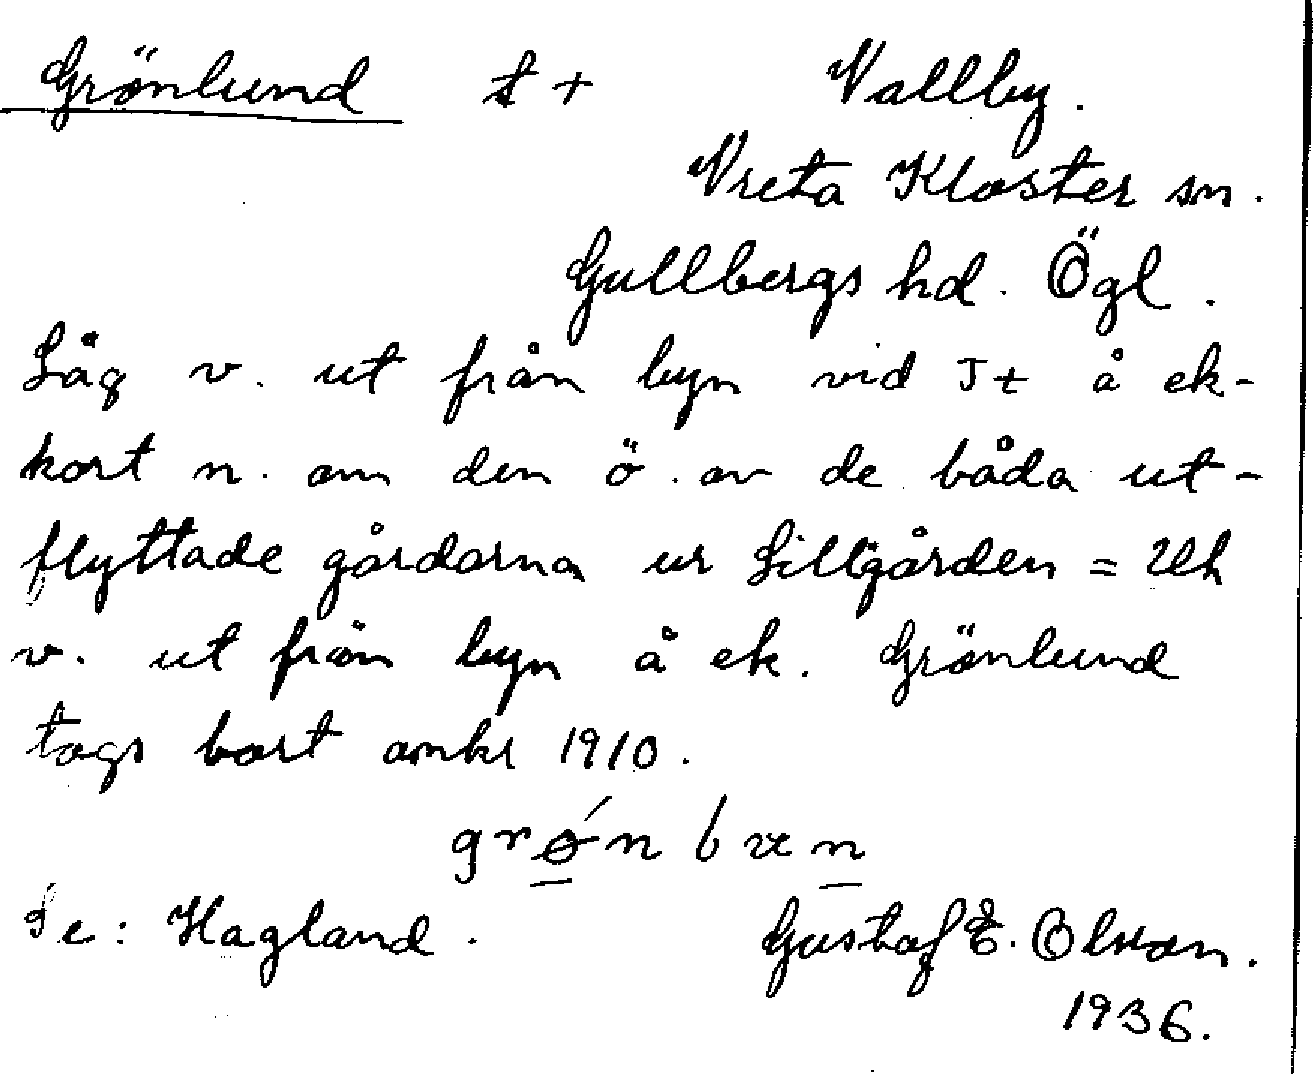 Grönlund t + Vallby.
Vreta Kloster sn.
Gullbergs hd. Ögl.
Låg v. ut från byn vid Jt å ek-
kort n. om den ö. av de båda ut-
flyttade gårdarna ur Lillgården =
v. ut från byn å ek. Grönlund
togs bort omkr 1910.
Se: Hagland.
Gustaf E. Olsson.
1936.